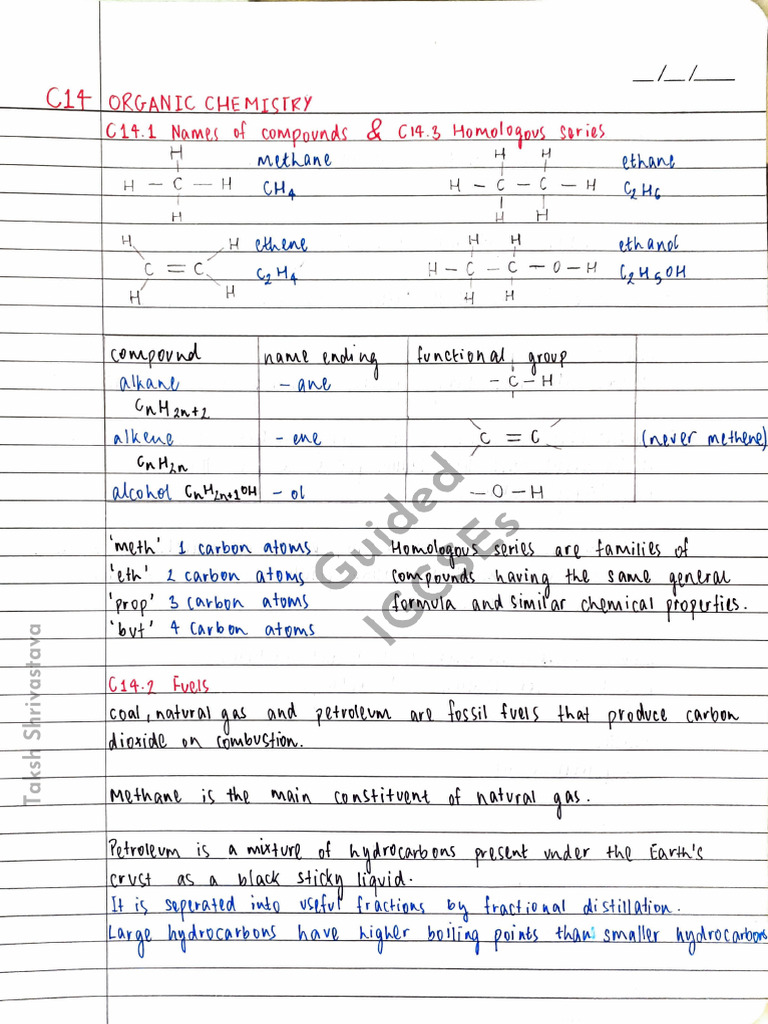 __/__/___
C14 ORGANIC CHEMISTRY
C14.1 Names of compounds & C14.3 Homologous series
H methane H H ethane
H – C – H CH₄ H – C – C – H C₂H₆
H H H
H H ethene H H ethanol
C = C C₂H₄ H – C – C – O – H C₂H₅OH
H H H H
compound name ending functional group
alkane – ane – C – H
CnH2n+2
alkene – ene C = C (never methene)
CnH2n
alcohol CnH2n+1OH – ol – O – H
'meth' 1 carbon atoms Homologous series are families of
'eth' 2 carbon atoms compounds having the same general
'prop' 3 carbon atoms formula and similar chemical properties.
'but' 4 carbon atoms
C14.2 Fuels
coal, natural gas and petroleum are fossil fuels that produce carbon
dioxide on combustion.
Methane is the main constituent of natural gas.
Petroleum is a mixture of hydrocarbons present under the Earth's
crust as a black sticky liquid.
It is seperated into useful fractions by fractional distillation.
Large hydrocarbons have higher boiling points than smaller hydrocarbons
Guided
IGCSEs
Taksh Shrivastava